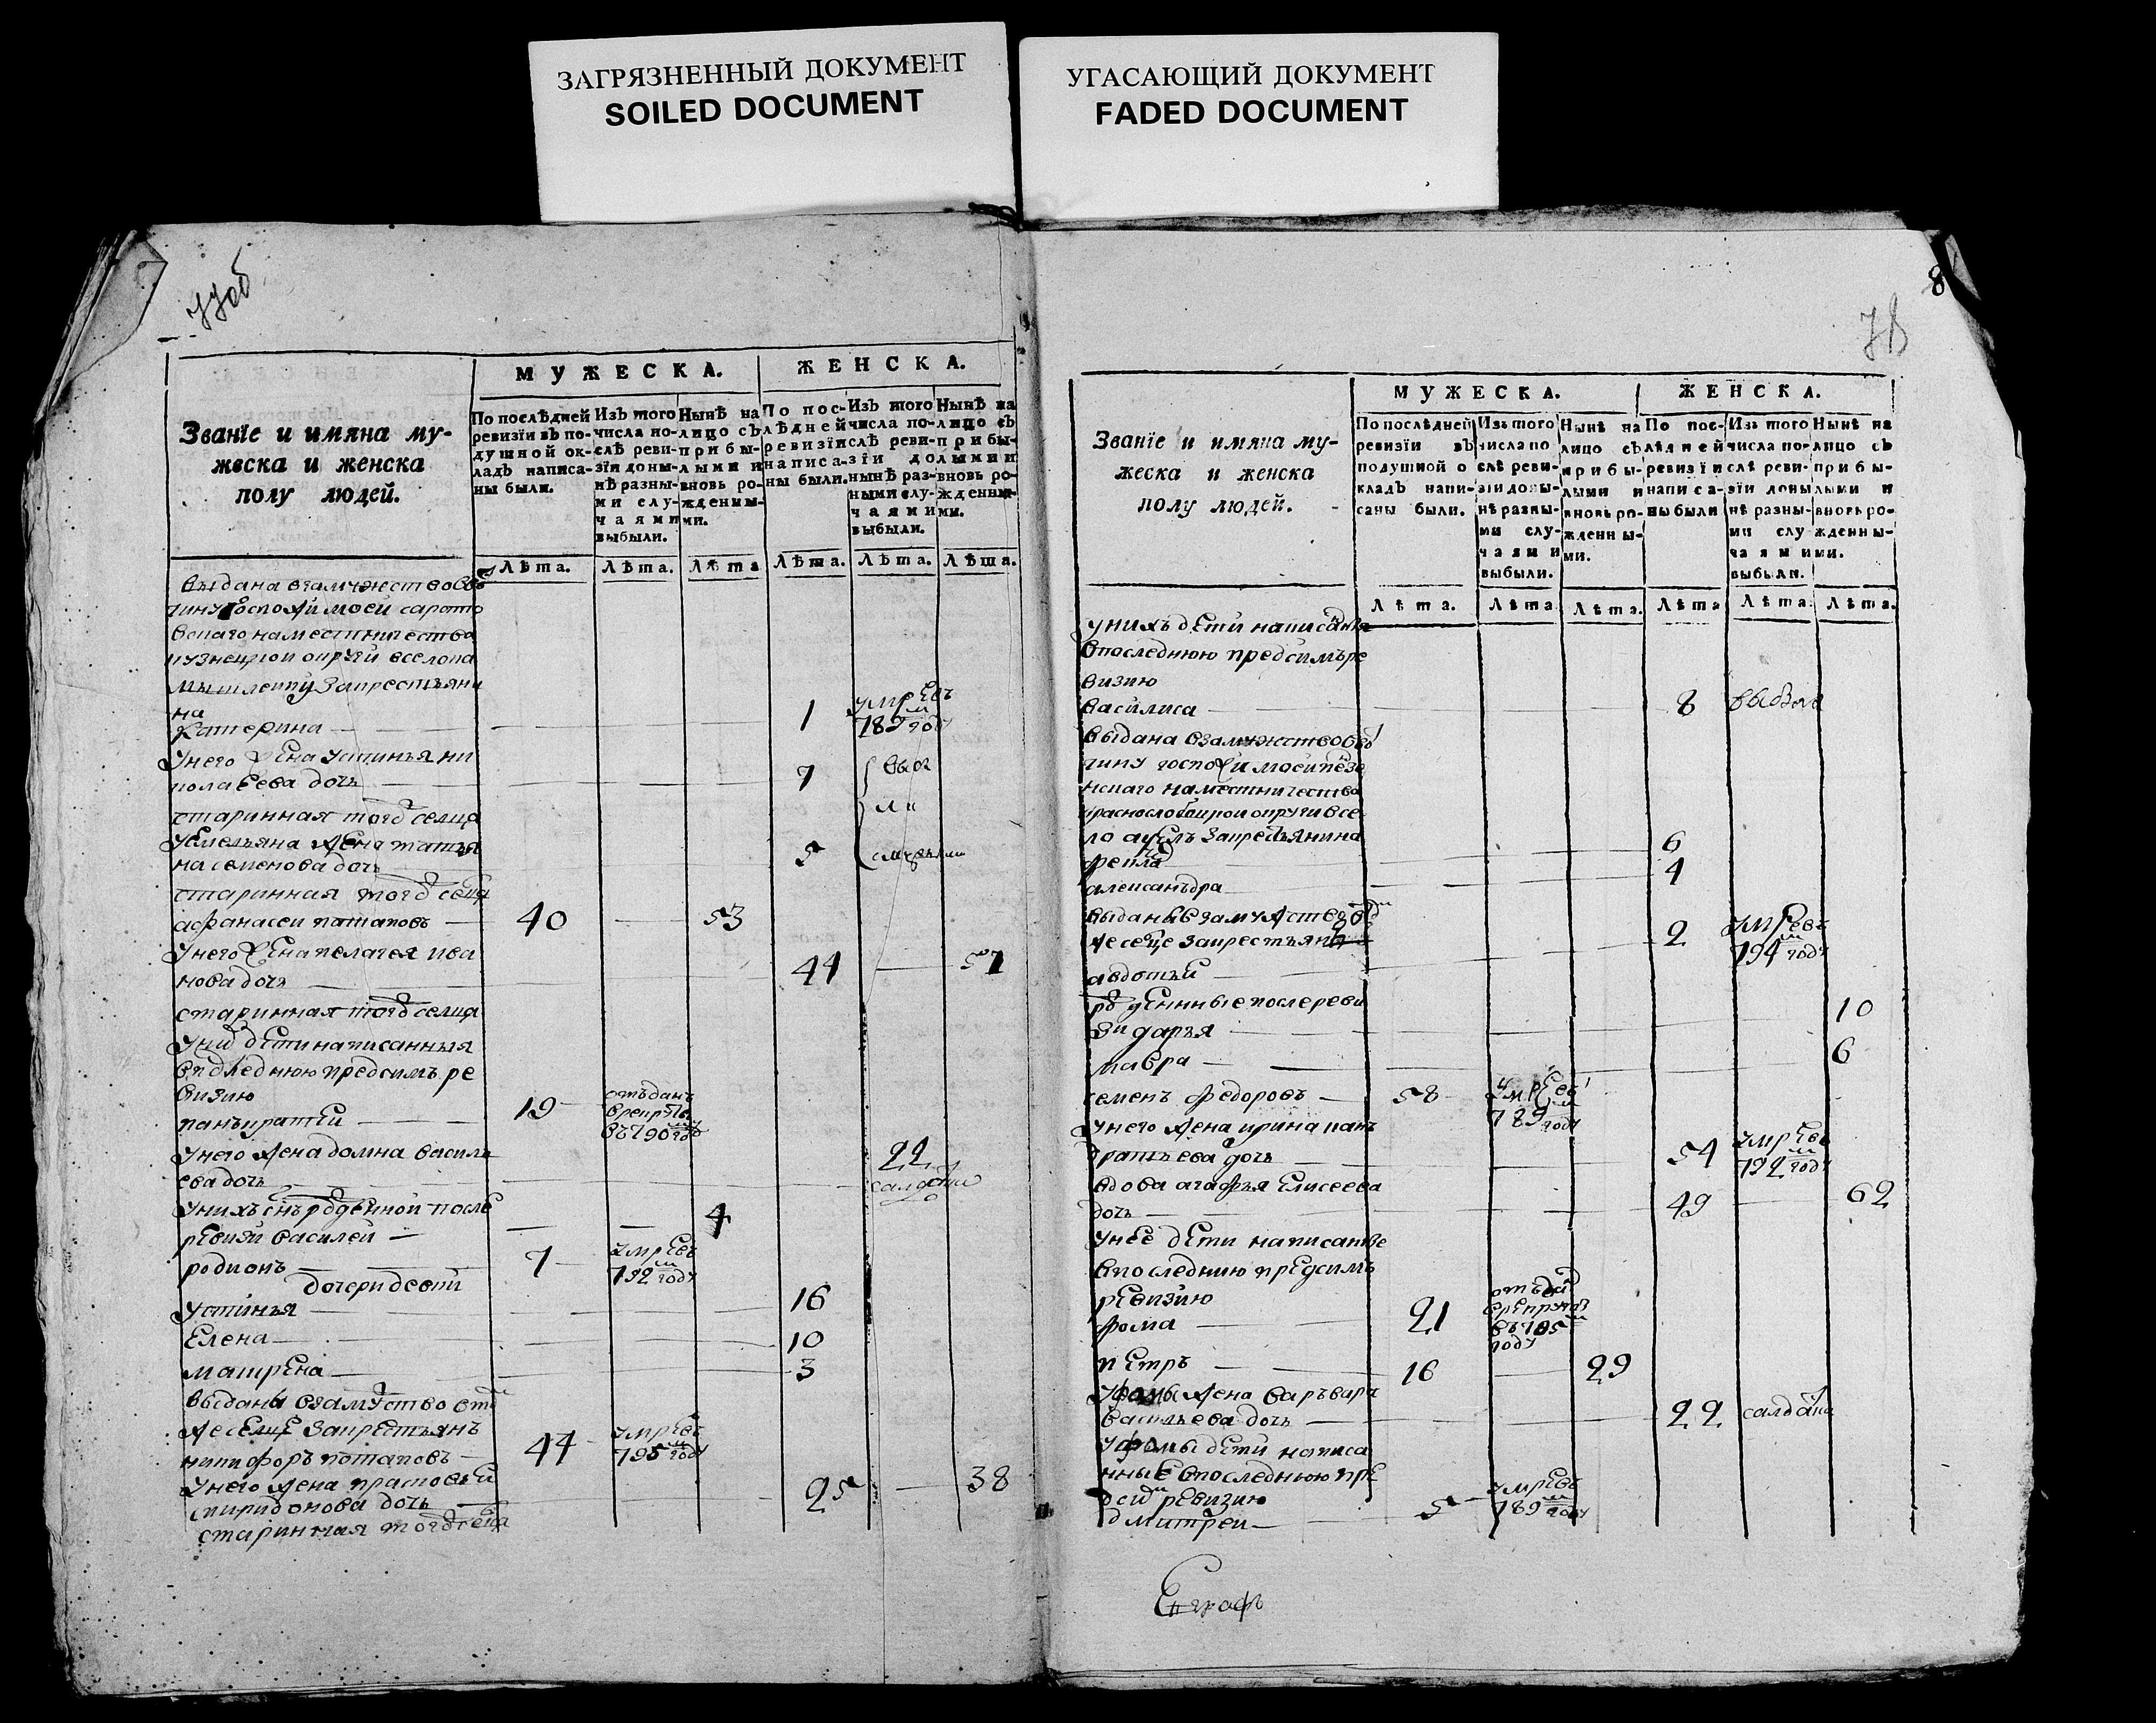 ЗАГРЯЗНЕННЫЙ ДОКУМЕНТ
SOILED DOCUMENT
УГАСАЮЩИЙ ДОКУМЕНТ
FADED DOCUMENT
77об
МУЖЕСКА.
ЖЕНСКА.
Званїе и имяна му-
жеска и женска
полу людей.
По послѣдней
ревизїи въ по-
душной ок-
ладъ написа-
ны были.
Изъ того
числа по-
слѣ реви-
зїи доны-
нѣ разны-
ми слу-
чаями
выбыли.
Нынѣ на
лицо съ
прибы-
лыми и
вновь ро-
жденны-
ми.
По пос-
лѣдней
ревизїи
написа-
ны были.
Изъ того
числа по-
слѣ реви-
зїи до
нынѣ раз-
ными слу-
чаями
выбыли.
Нынѣ на
лицо съ
прибы-
лыми и
вновь ро-
жденны-
ми.
Лѣта. Лѣта. Лѣта Лѣта. Лѣта. Лѣта.
выдана взамужество вво
чину госпожи моей сарато
вскаго наместничества
кузнецкой округи всело
запрестьяни
на
катерина 1 умре въ 789м году
унего жена устинья ни
колаева дочь 7
старинная тогд селца
уемельяна жена татья
на семенова дочь 5
старинная тогд селца
афанасеи потаповъ 40 53
унего жена пелагея ива
нова дочь 44 57
старинная тогд селца
уних дети написанныя
впоследнюю предсимъ ре
визию
панъкратеи 19 отъданъ врекруты въ 790м году
унего жена домна василь
ева дочь 22 салдатка
унихъ снъ рожденной после
ревизи василеи 4
родионъ 7 умре въ 792м году
дочери девки
устинья 16
елена 10
матрена 3
выданы взамуство втом
же селце запрестьянъ
никифоръ потаповъ 44 умре въ 795м году
унего жена прасковья
спиридонова дочь 25 38
старинная тогд селца
8
78
МУЖЕСКА.
ЖЕНСКА.
Званїе и имяна му-
жеска и женска
полу людей.
По послѣдней
ревизїи въ
подушной о
кладъ напи-
саны были.
Изъ того
числа по
слѣ реви-
зїи доны-
нѣ разны-
ми слу-
чаями
выбыли.
Нынѣ на
лицо съ
прибы-
лыми и
вновь ро-
жденны-
ми.
По пос-
лѣдней
ревизїи
написа-
ны были
Изъ того
числа по-
слѣ реви-
зїи доны
нѣ разны-
ми слу
чаями
выбыли.
Нынѣ на
лицо съ
прибы-
лыми и
вновь ро-
жденны-
ми.
Лѣта. Лѣта Лѣта. Лѣта Лѣта. Лѣта.
унихъ дети написанныя
впоследнюю предсимъ ре
визию
василиса 8
выдана взамужество вво
чину госпожи моей пензе
нскаго наместничества
краснослободцкой округи все
ло запрестьянина
фекла 6
александра 4
выданы взамужество втом
же селце запрестьянъ
авдотья 2 умре въ 794м году
рожденные после реви
зи дарья 10
мавра 6
семенъ федоровъ 58 умре въ 789м году
унего жена ирина панъ
кратьева дочь 54 умре въ 792м году
вдова агафья елисеева
дочь 49 62
унее дети написанные
впоследнию предсимъ
ревизию
фома 21 отъдан врекруты въ 785м году
петръ 16 29
уфомы жена варъвара
васильева дочь 22 салдатка
уфомы дети написа
нные впоследнюю пре
дсим ревизию
дмитреи 5 умре въ 789м году